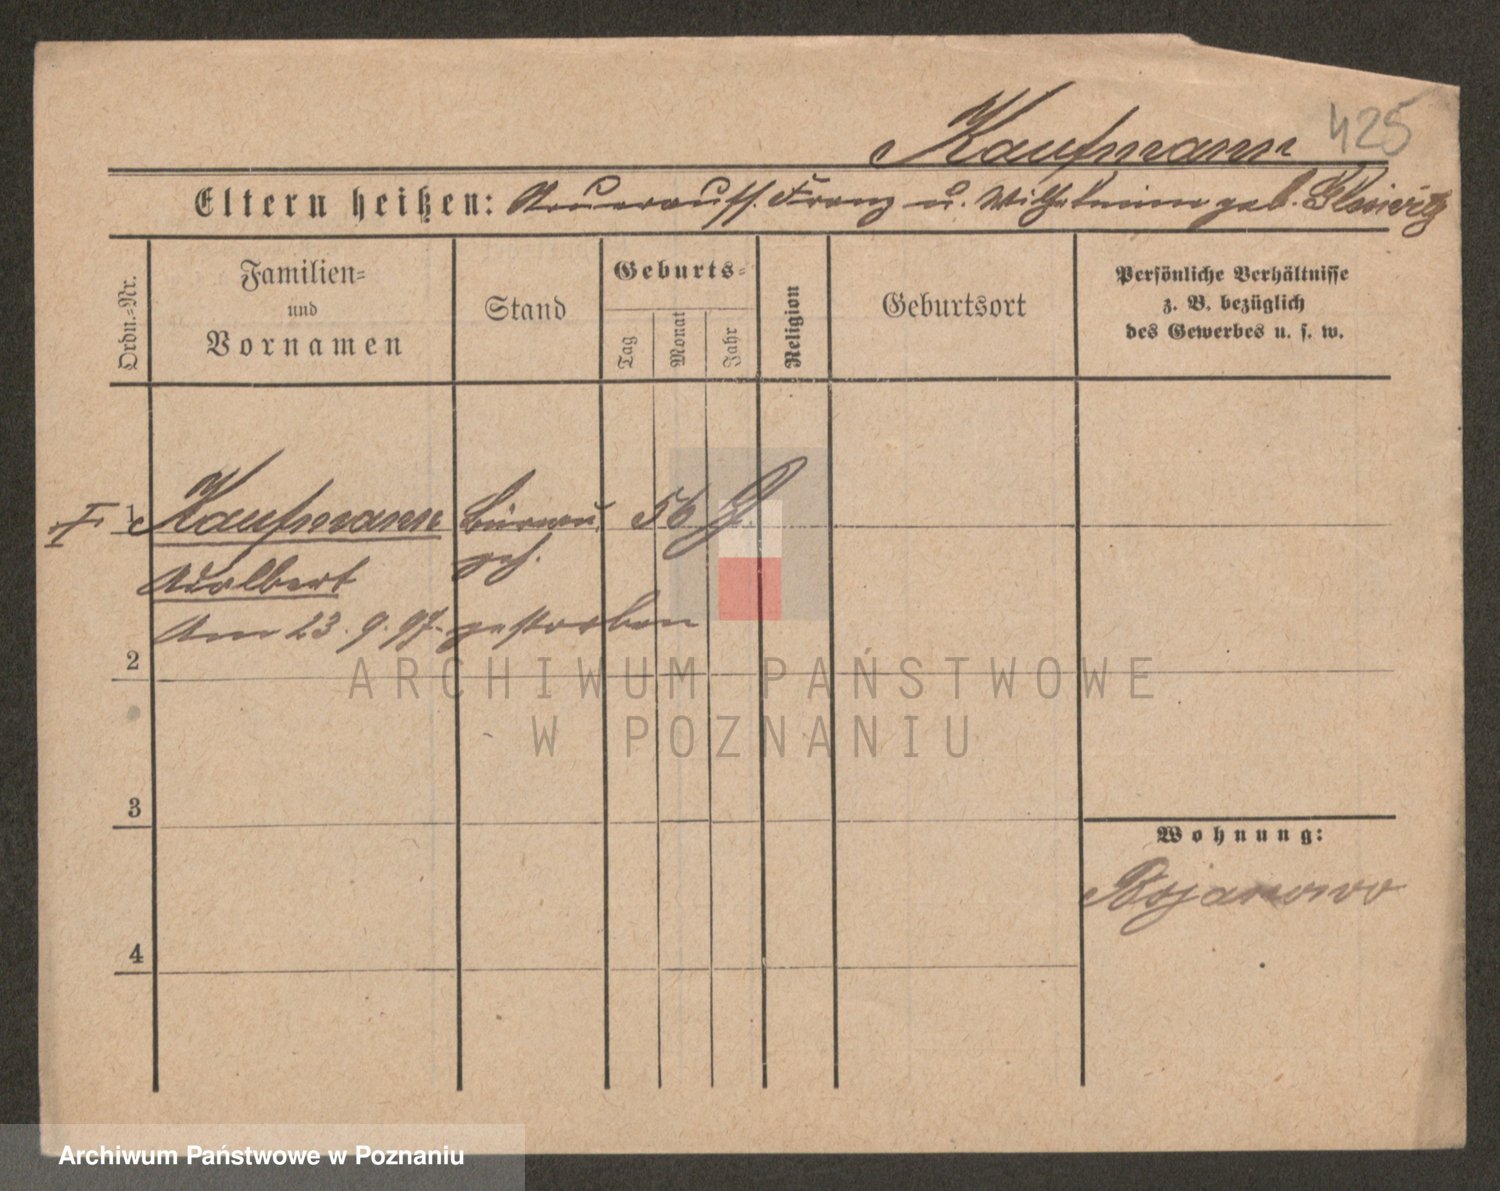 425
Kaufmann
Eltern heißen: Steuerauff. Franz u. Wilhelmine geb.
Familien=
und
Vornamen
Ordn.=Nr.
Stand
Geburts=
Tag
Monat
Jahr
Religion
Geburtsort
Persönliche Verhältnisse
z. B. bezüglich
des Gewerbes u. s. w.
1 Kaufmann 56
Adalbert
Am 23.9.97. gestorben
2
3
4
Wohnung:
Bojanowo
ARCHIWUM PAŃSTWOWE
W POZNANIU
Archiwum Państwowe w Poznaniu